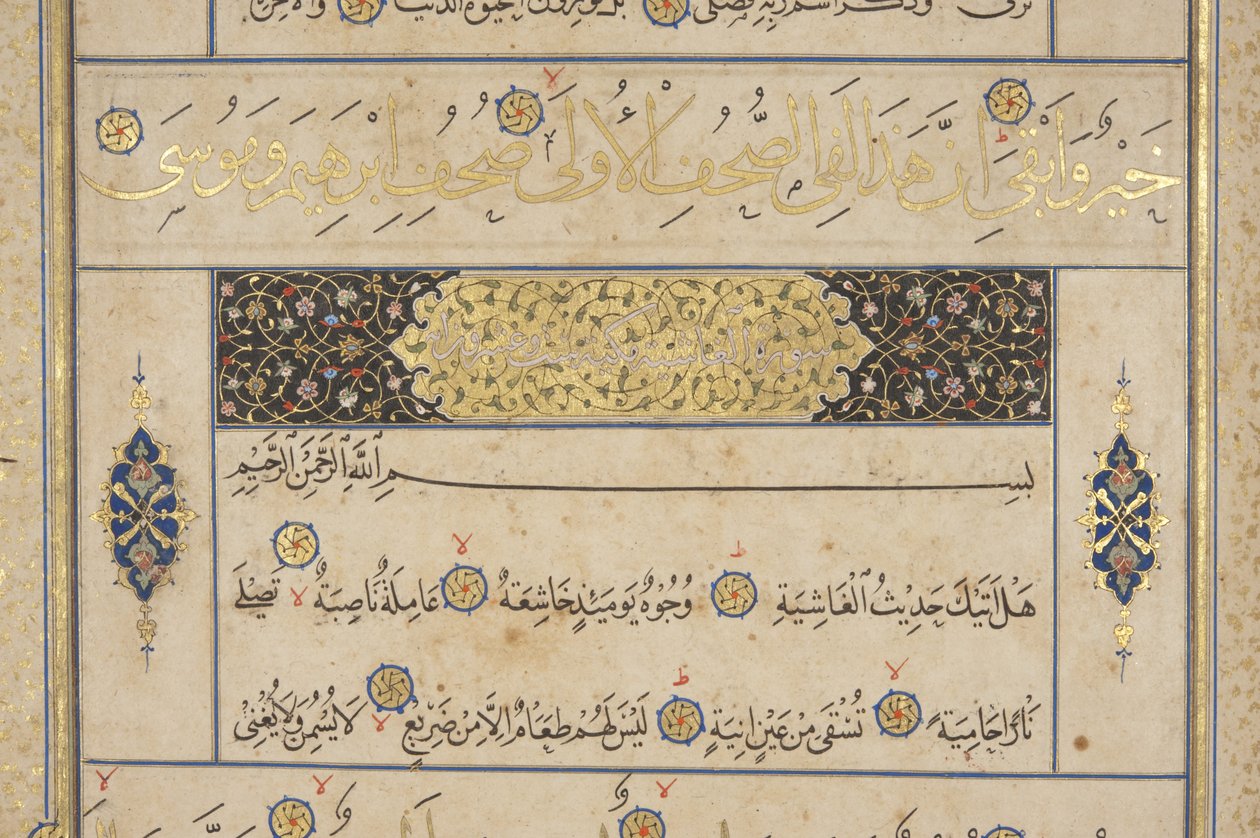 تزكى وذكر اسم ربه فصلى بل تؤثرون الحيوة الدنيا والاخرة
خَيْرٌ وَاَبْقَى اِنَّ هَذَا لَفِي الصُّحُفِ الْاُولَى صُحُفِ اِبْرَهِيمَ وَمُوسَى
سورة الغاشية مكية ست وعشرون
بِسْمِ ٱللَّهِ ٱلرَّحْمَنِ ٱلرَّحِيمِ
هَلْ اَتَيكَ حَدِيثُ ٱلْغَاشِيَةِ وُجُوهٌ يَوْمَئِذٍ خَاشِعَةٌ عَامِلَةٌ نَاصِبَةٌ تَصْلَى
نَارًا حَامِيَةً تُسْقَى مِنْ عَيْنٍ انِيَةٍ لَيْسَ لَهُمْ طَعَامٌ اِلَّا مِنْ ضَرِيعٍ لَا يُسْمِنُ وَلَا يُغْنِى